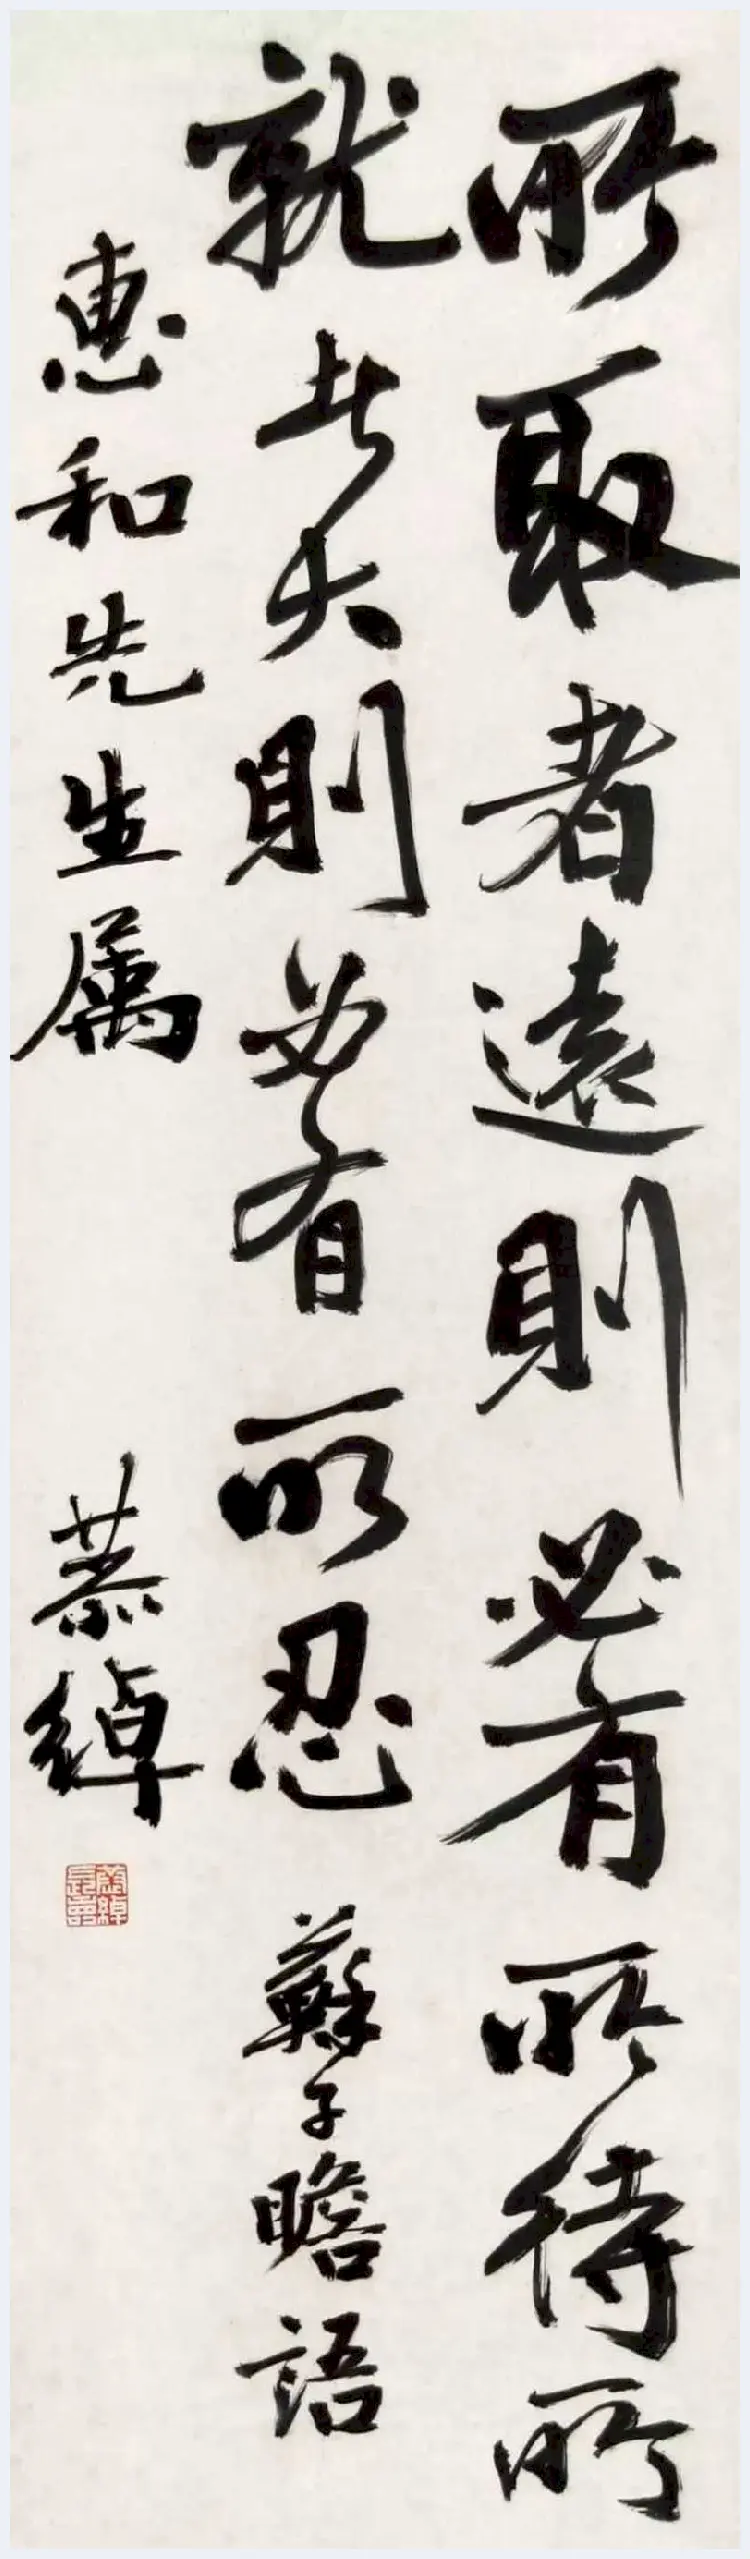 所取者遠則必有所待所
就者大則必有所忍 蘇子瞻語
惠和先生属 恭綽